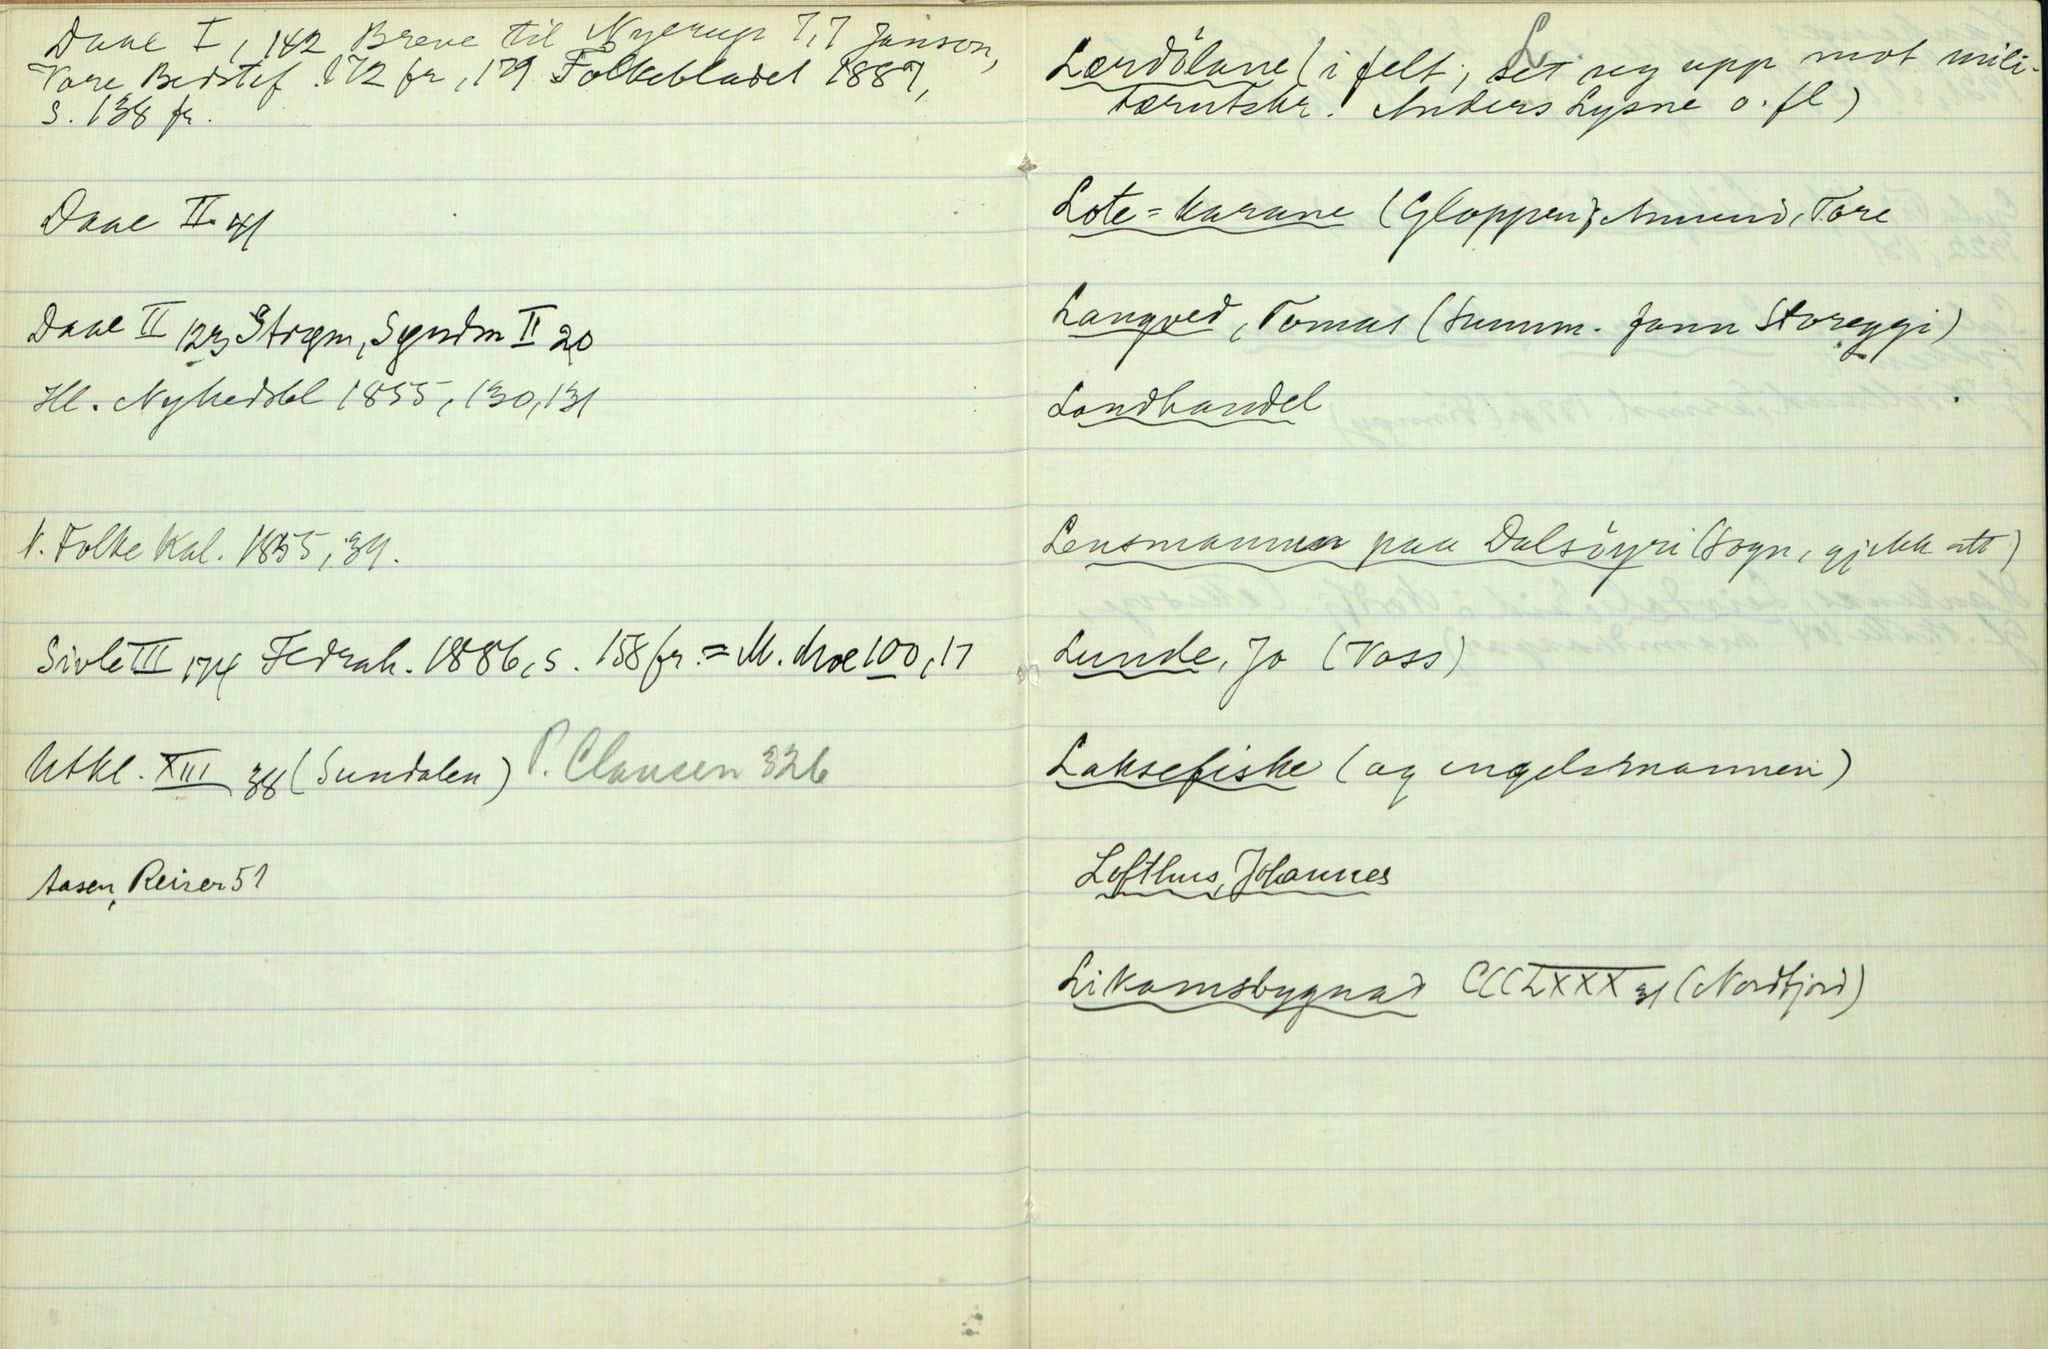 Daae I, 142 Breve til Nyerup 7,7 Janson,
Vore Bedstef. 172 fr, 179 Folkebladet 1887,
s. 138 fr.
Daae II 41
Daae II 123 Strøm, Syndm II 20
Ill. Nyhedsbl 1855, 130, 131
N. Folke Kal. 1855, 39.
Sivle III 174 Fedrah. 1886, s. 158 fr. = M. Moe 100, 17
Utkl. XIII 38 (Sundalen) P. Clausen 326
Aasen, Reiser 51
L
Lærdölane (i felt; set seg upp mot mili-
tærutskr. Anders Lysne o. fl)
Lote=karane (Gloppen); Amund, Tore
Langved, Tomas (Sunnm. Jonn Storeggi)
Landhandel
Lensmannen paa Dalsöyri (Sogn, gjekk att)
Lunde, Jo (Voss)
Laksefiske (og engelsmannen)
Lofthus, Johannes
Likamsbygnad CCCLXXX 31 (Nordfjord)